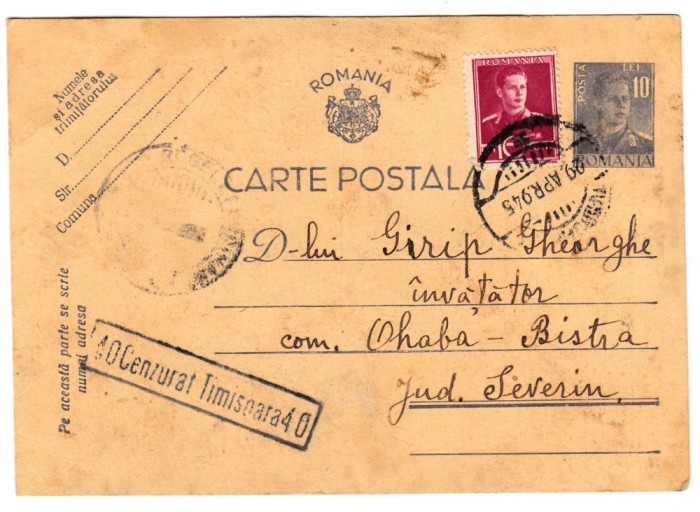 Numele
și adresa
trimițătorului
D.
Str.
Comuna
ROMANIA
CARTE POSTALA
ROMANIA
10
POSTA LEI
10
ROMANIA
29. APR. 945
D-lui Girip Gheorghe
învățător
com. Ohaba-Bistra
Jud. Severin.
Pe această parte se scrie
numai adresa
40 Cenzurat Timisoara 40